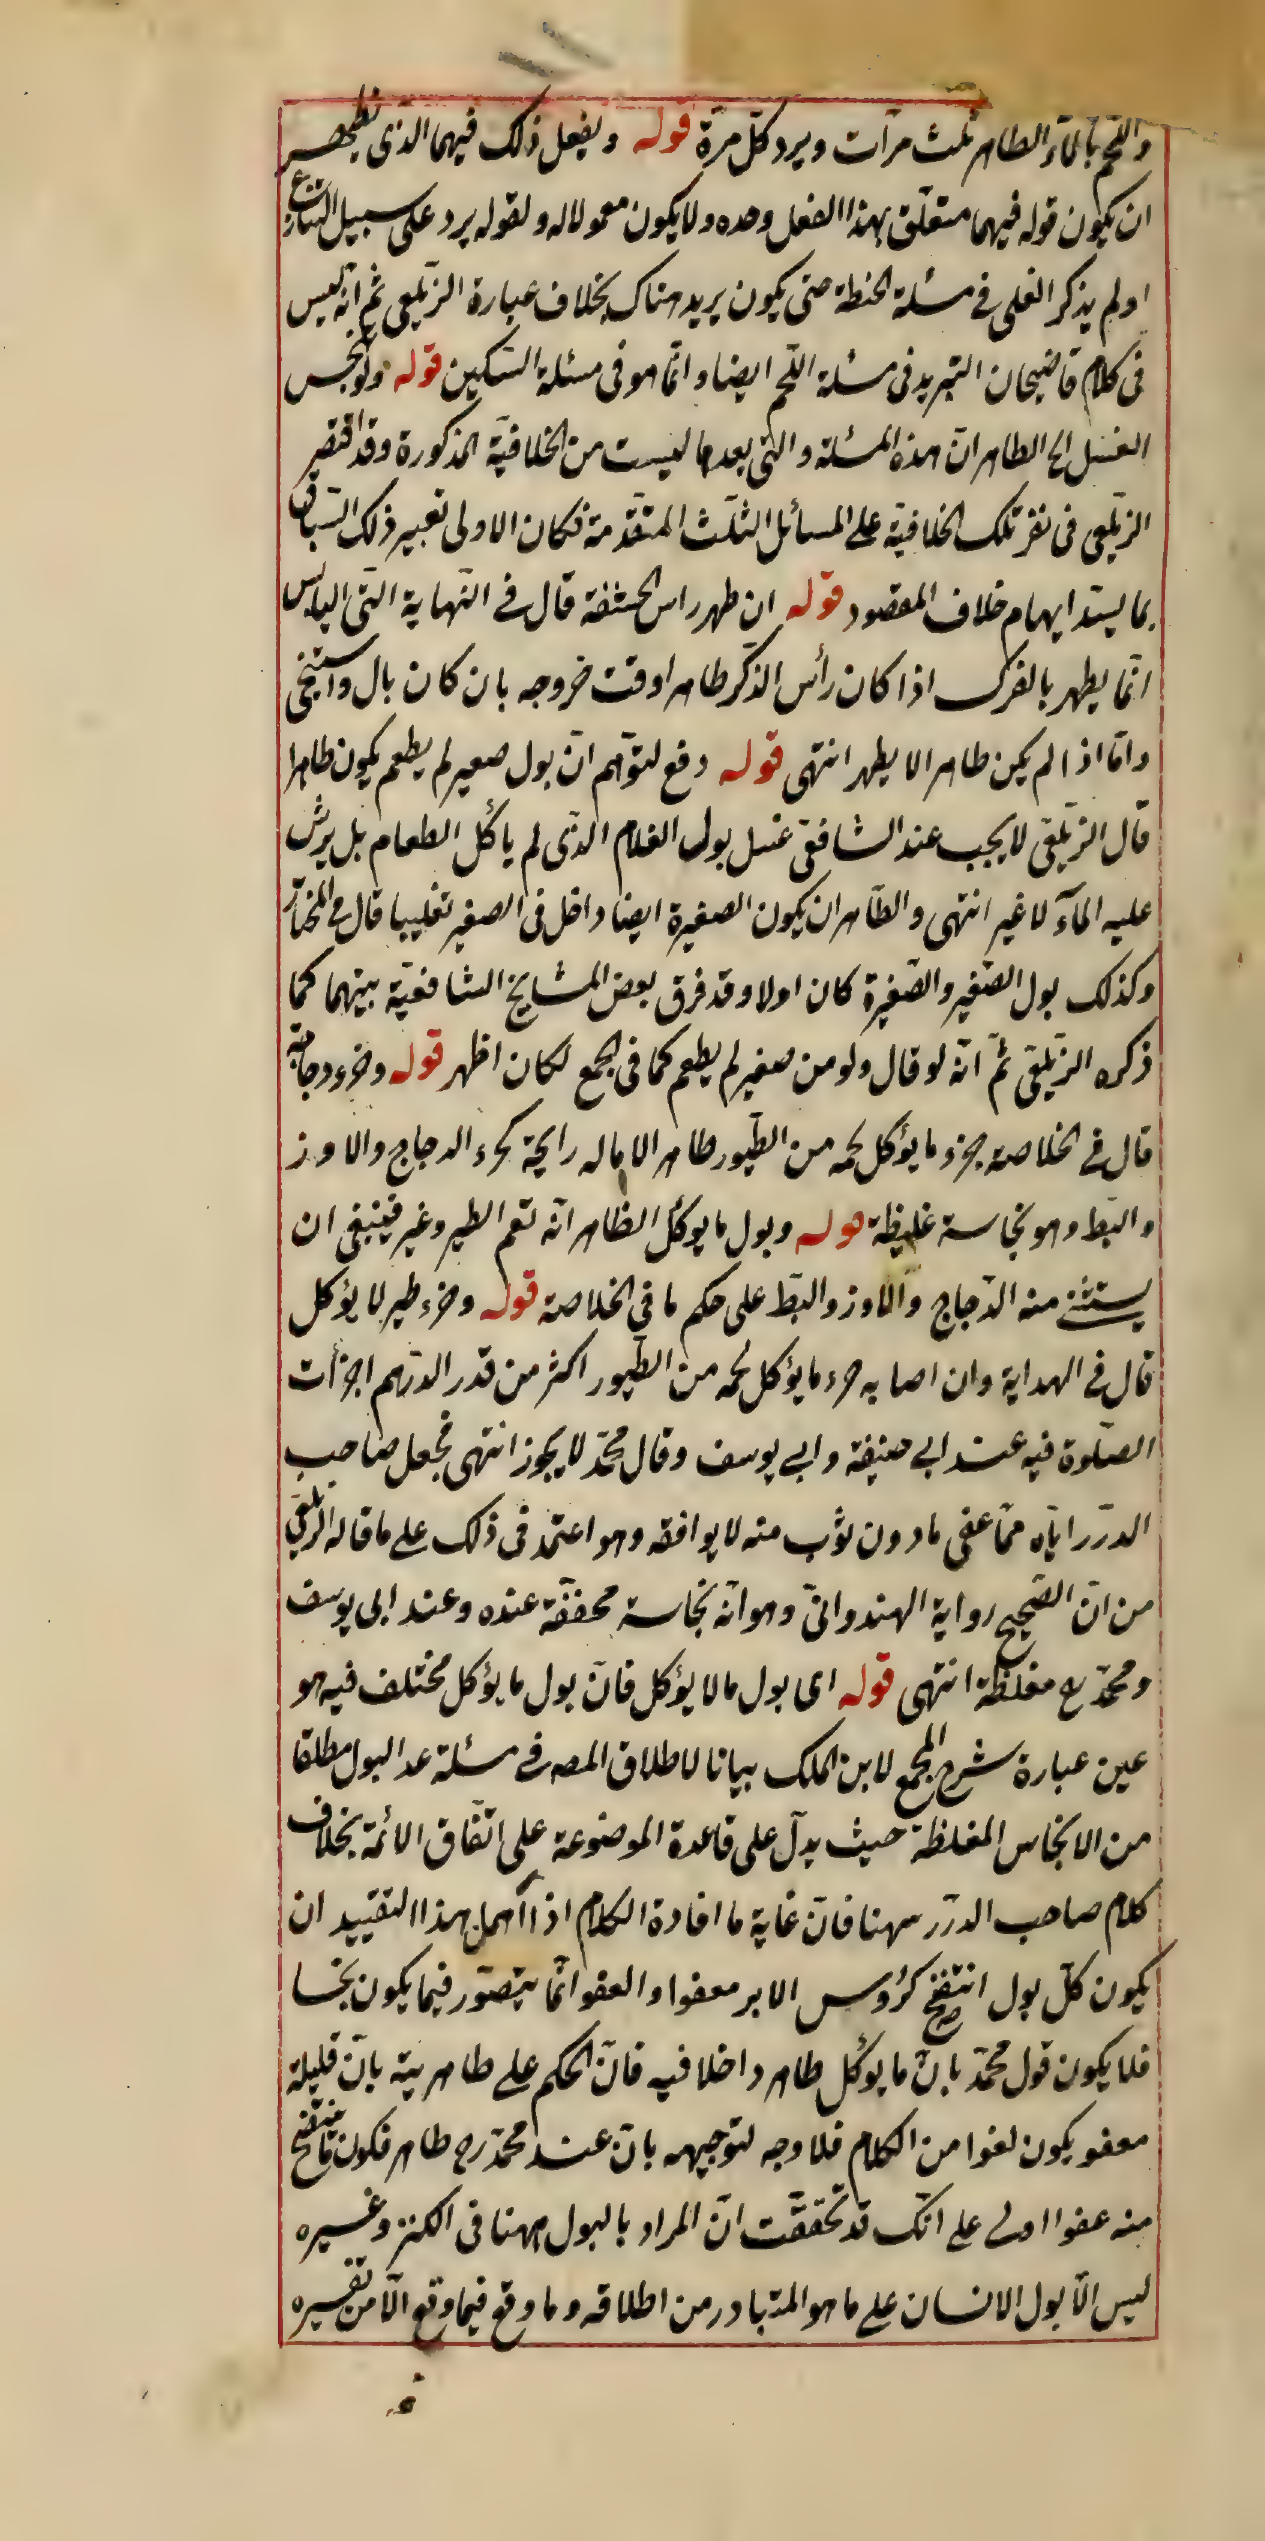 واللحم بالماء الطاهر ثلث مرات ويبرد كل مرة قوله ويفعل ذلك فيهما الذي يظهر
ان يكون قوله فيهما متعلق بهذا الفعل وحده ولا يكون معمولا له ولقوله يبرد على سبيل التنازع
اولم يذكر الغلي في مسئلة الحنطة حتى يكون يريد هناك بخلاف عبارة الزيلعي ثم انه ليس
في كلام قاضيخان التبريد في مسئلة اللحم ايضا وانما هو في مسئلة السكين قوله ولو نجس
العسل الخ الظاهر ان هذه المسئلة والتي بعدها ليست من الخلافية المذكورة وقد اقتصر
الزيلعي في نقر تلك الخلافية على المسائل الثلث المتقدمة فكان الاولى تغيير ذلك السياق
بما يسد ايهام خلاف المقصود قوله ان طهر راس الحشفة قال في النهاية التي اليابس
انما يطهر بالفرك اذا كان رأس الذكر طاهرا وقت خروجه بان كان بال واستنجى
واما اذا لم يكن طاهرا لا يطهر انتهى قوله دفع لتوهم ان بول صغير لم يطعم يكون طاهرا
قال الزيلعي لا يجب عند الشافعي غسل بول الغلام الذي لم يأكل الطعام بل يرش
عليه الماء لا غير انتهى والظاهر ان يكون الصغيرة ايضا داخل في الصغير تغليبا قال في المختار
وكذلك بول الصغير والصغيرة كان اولا وقد فرق بعض المشايخ الشافعية بينهما كما
ذكره الزيلعي ثم انه لو قال ولو من صغير لم يطعم كما في المجمع لكان اظهر قوله وخرء دجاجة
قال في الخلاصة خرء ما يؤكل لحمه من الطيور طاهر الا ما له رايحة كخرء الدجاج والاوز
والبط وهو نجاسة غليظة قوله وبول ما يوكل الظاهر انه تعم الطير وغير فينبغي ان
يستثنى منه الدجاج والاوز والبط على حكم ما في الخلاصة قوله وخرء طير لا يؤكل
قال في الهداية وان اصابه خرء ما يؤكل لحمه من الطيور اكثر من قدر الدرهم اجزأت
الصلوة فيه عند ابي حنيفة وابي يوسف وقال محمد لا يجوز انتهى فجعل صاحب
الدرر اياه مما عفى ما دون ثوب منه لا يوافقه وهو اعتمد في ذلك على ما قاله الزيلعي
من ان الصحيح رواية الهندواني وهو انه نجاسة مخففة عنده وعند ابي يوسف
ومحمد رح مغلظة انتهى قوله اى بول ما لا يؤكل فان بول ما يؤكل مختلف فيه هو
عين عبارة شرح المجمع لابن الملك بيانا لاطلاق المصه في مسئلة عد البول مطلقا
من الانجاس المغلظة حيث يدل على قاعدة الموضوعة على اتفاق الائمة بخلاف
كلام صاحب الدرر ههنا فان غاية ما افادة الكلام اذا اهمل بهذا التقييد ان
يكون كل بول انتضح كرؤس الابر معفوا والعفو انما يتصور فيما يكون نجسا
فلا يكون قول محمد بان ما يوكل طاهر داخلا فيه فان الحكم على طاهريته بان قليله
معفو يكون لغوا من الكلام فلا وجه لتوجيهه بان عند محمد رح طاهر فكون ما انتضح
منه عفوا اولى على انك قد تحققت ان المراد بالبول ههنا في الكنز وغيره
ليس الا بول الانسان على ما هو المتبادر من اطلاقه وما وقع فيما وقع الا من تفسيره